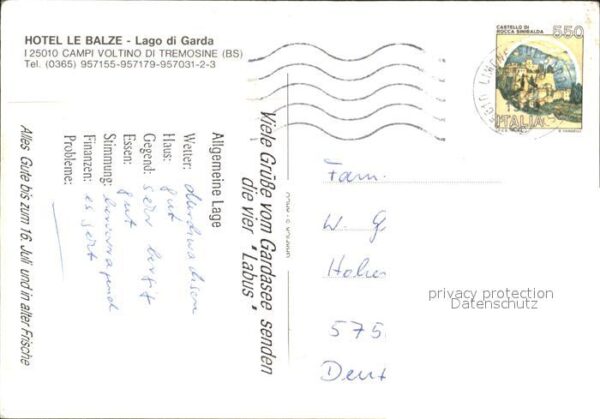 HOTEL LE BALZE - Lago di Garda
I 25010 CAMPI VOLTINO DI TREMOSINE (BS)
Tel. (0365) 957155-957179-957031-2-3
CASTELLO DI
ROCCA SINIBALDA
550
ITALIA
Viele Grüße vom Gardasee senden
die vier "Labus"
Allgemeine Lage
Wetter: durchwachsen
Haus: gut
Gegend:
Essen: gut
Stimmung: hervorragend
Finanzen: es geht
Probleme:
Alles Gute bis zum 16. Juli und in alter Frische
Fam.
W. G
Hohe
575
Deut
privacy protection
Datenschutz